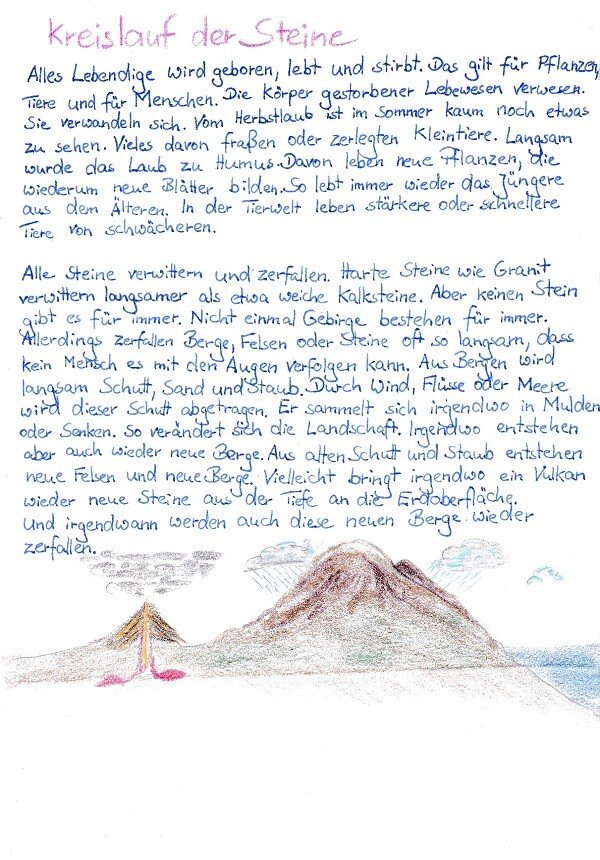 Kreislauf der Steine
Alles Lebendige wird geboren, lebt und stirbt. Das gilt für Pflanzen,
Tiere und für Menschen. Die Körper gestorbener Lebewesen verwesen.
Sie verwandeln sich. Vom Herbstlaub ist im Sommer kaum noch etwas
zu sehen. Vieles davon fraßen oder zerlegten Kleintiere. Langsam
wurde das Laub zu Humus. Davon leben neue Pflanzen, die
wiederum neue Blätter bilden. So lebt immer wieder das Jüngere
aus dem Älteren. In der Tierwelt leben stärkere oder schnellere
Tiere von schwächeren.
Alle Steine verwittern und zerfallen. Harte Steine wie Granit
verwittern langsamer als etwa weiche Kalksteine. Aber keinen Stein
gibt es für immer. Nicht einmal Gebirge bestehen für immer.
Allerdings zerfallen Berge, Felsen oder Steine oft so langsam, dass
kein Mensch es mit den Augen verfolgen kann. Aus Bergen wird
langsam Schutt, Sand und Staub. Durch Wind, Flüsse oder Meere
wird dieser Schutt abgetragen. Er sammelt sich irgendwo in Mulden
oder Senken. So verändert sich die Landschaft. Irgendwo entstehen
aber auch wieder neue Berge. Aus alten Schutt und Staub entstehen
neue Felsen und neue Berge. Vielleicht bringt irgendwo ein Vulkan
wieder neue Steine aus der Tiefe an die Erdoberfläche.
Und irgendwann werden auch diese neuen Berge wieder
zerfallen.